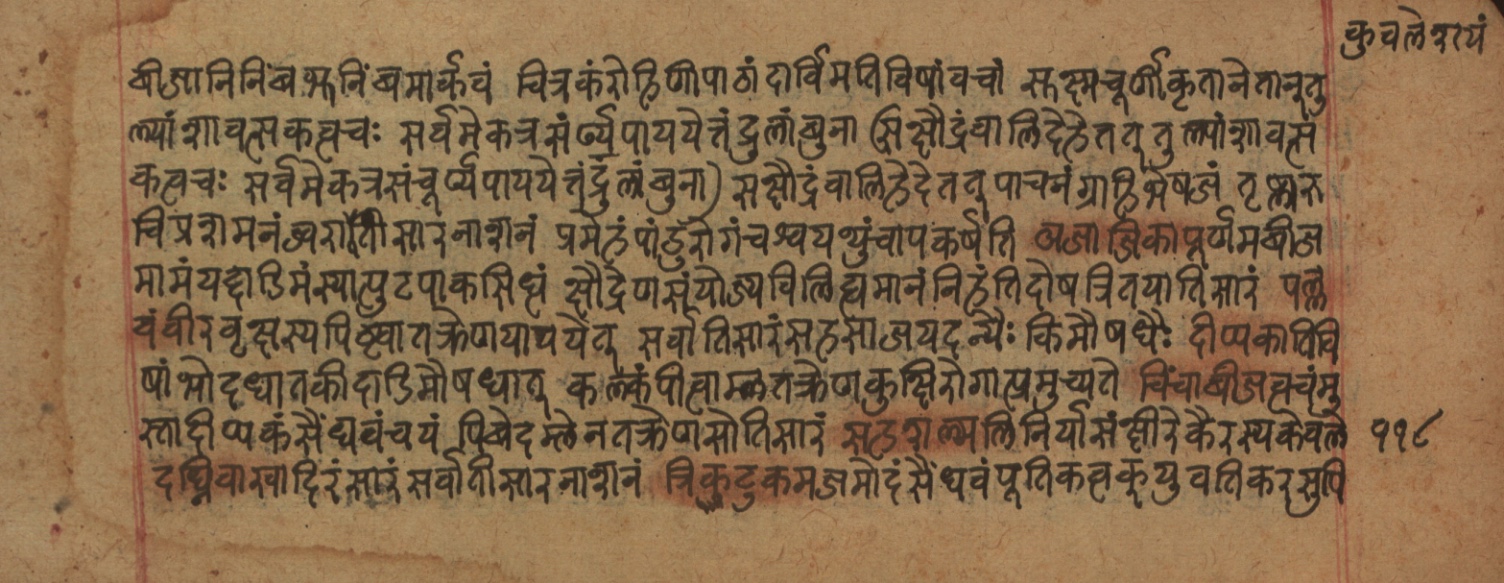 कुवलेशयं
बीजानिनिंबभूनिंबमार्कवं चित्रकंरोहिणीपाठांदार्विमतिविषांवचां सूक्ष्मचूर्णीकृतानेतान्तु
ल्यांशावत्सकत्वचः सर्वमेकत्रसंर्ण्यपाययेत्तंदुलांबुना (सक्षौद्रंवालिहेदेतत् तुल्यांशावत्सं
कत्वचः सर्वमेकत्रसंचूर्ण्यपाययेत्तंदुलांबुना) सक्षौद्रंवालिहेदेतत् पाचनंग्राहिभेषजं तृष्णारु
चिप्रशमनंज्वरातीसारनाशनं प्रमेहंपांडुरोगंचश्वयथुंचापकर्षति अजाजिकापूर्णमबीज
मामंयद्दाडिमंस्यात्पुटपाकसिद्धं क्षौद्रेणसंयोज्यविलिह्यमानंनिहंतिदोषत्रितयातिसारं पल्ल
वंवीरवृक्षस्यपिष्ट्वातक्रेणपाययेत् सर्वातिसारंसहसाजयदन्यैः किमौषधैः दीप्यकातिवि
षांभोदधातकीदाडिमौषधात् कल्कंपीत्वाम्लतक्रेणकुक्षिरोगात्प्रमुच्यते चिंचाबीजत्वचंमु
स्तादीप्यकंसैंधवंचयं पिबेदम्लेनतक्रेणसोतिसारं सहशाल्मलिनिर्यासंक्षीरेकैरस्यकेवले ११८
दध्निवाखादिरंसारंसर्वातीसारनाशनं त्रिकुटुकमजमोदंसैंधवंपूतिकत्वक्युवतिकरसुपि